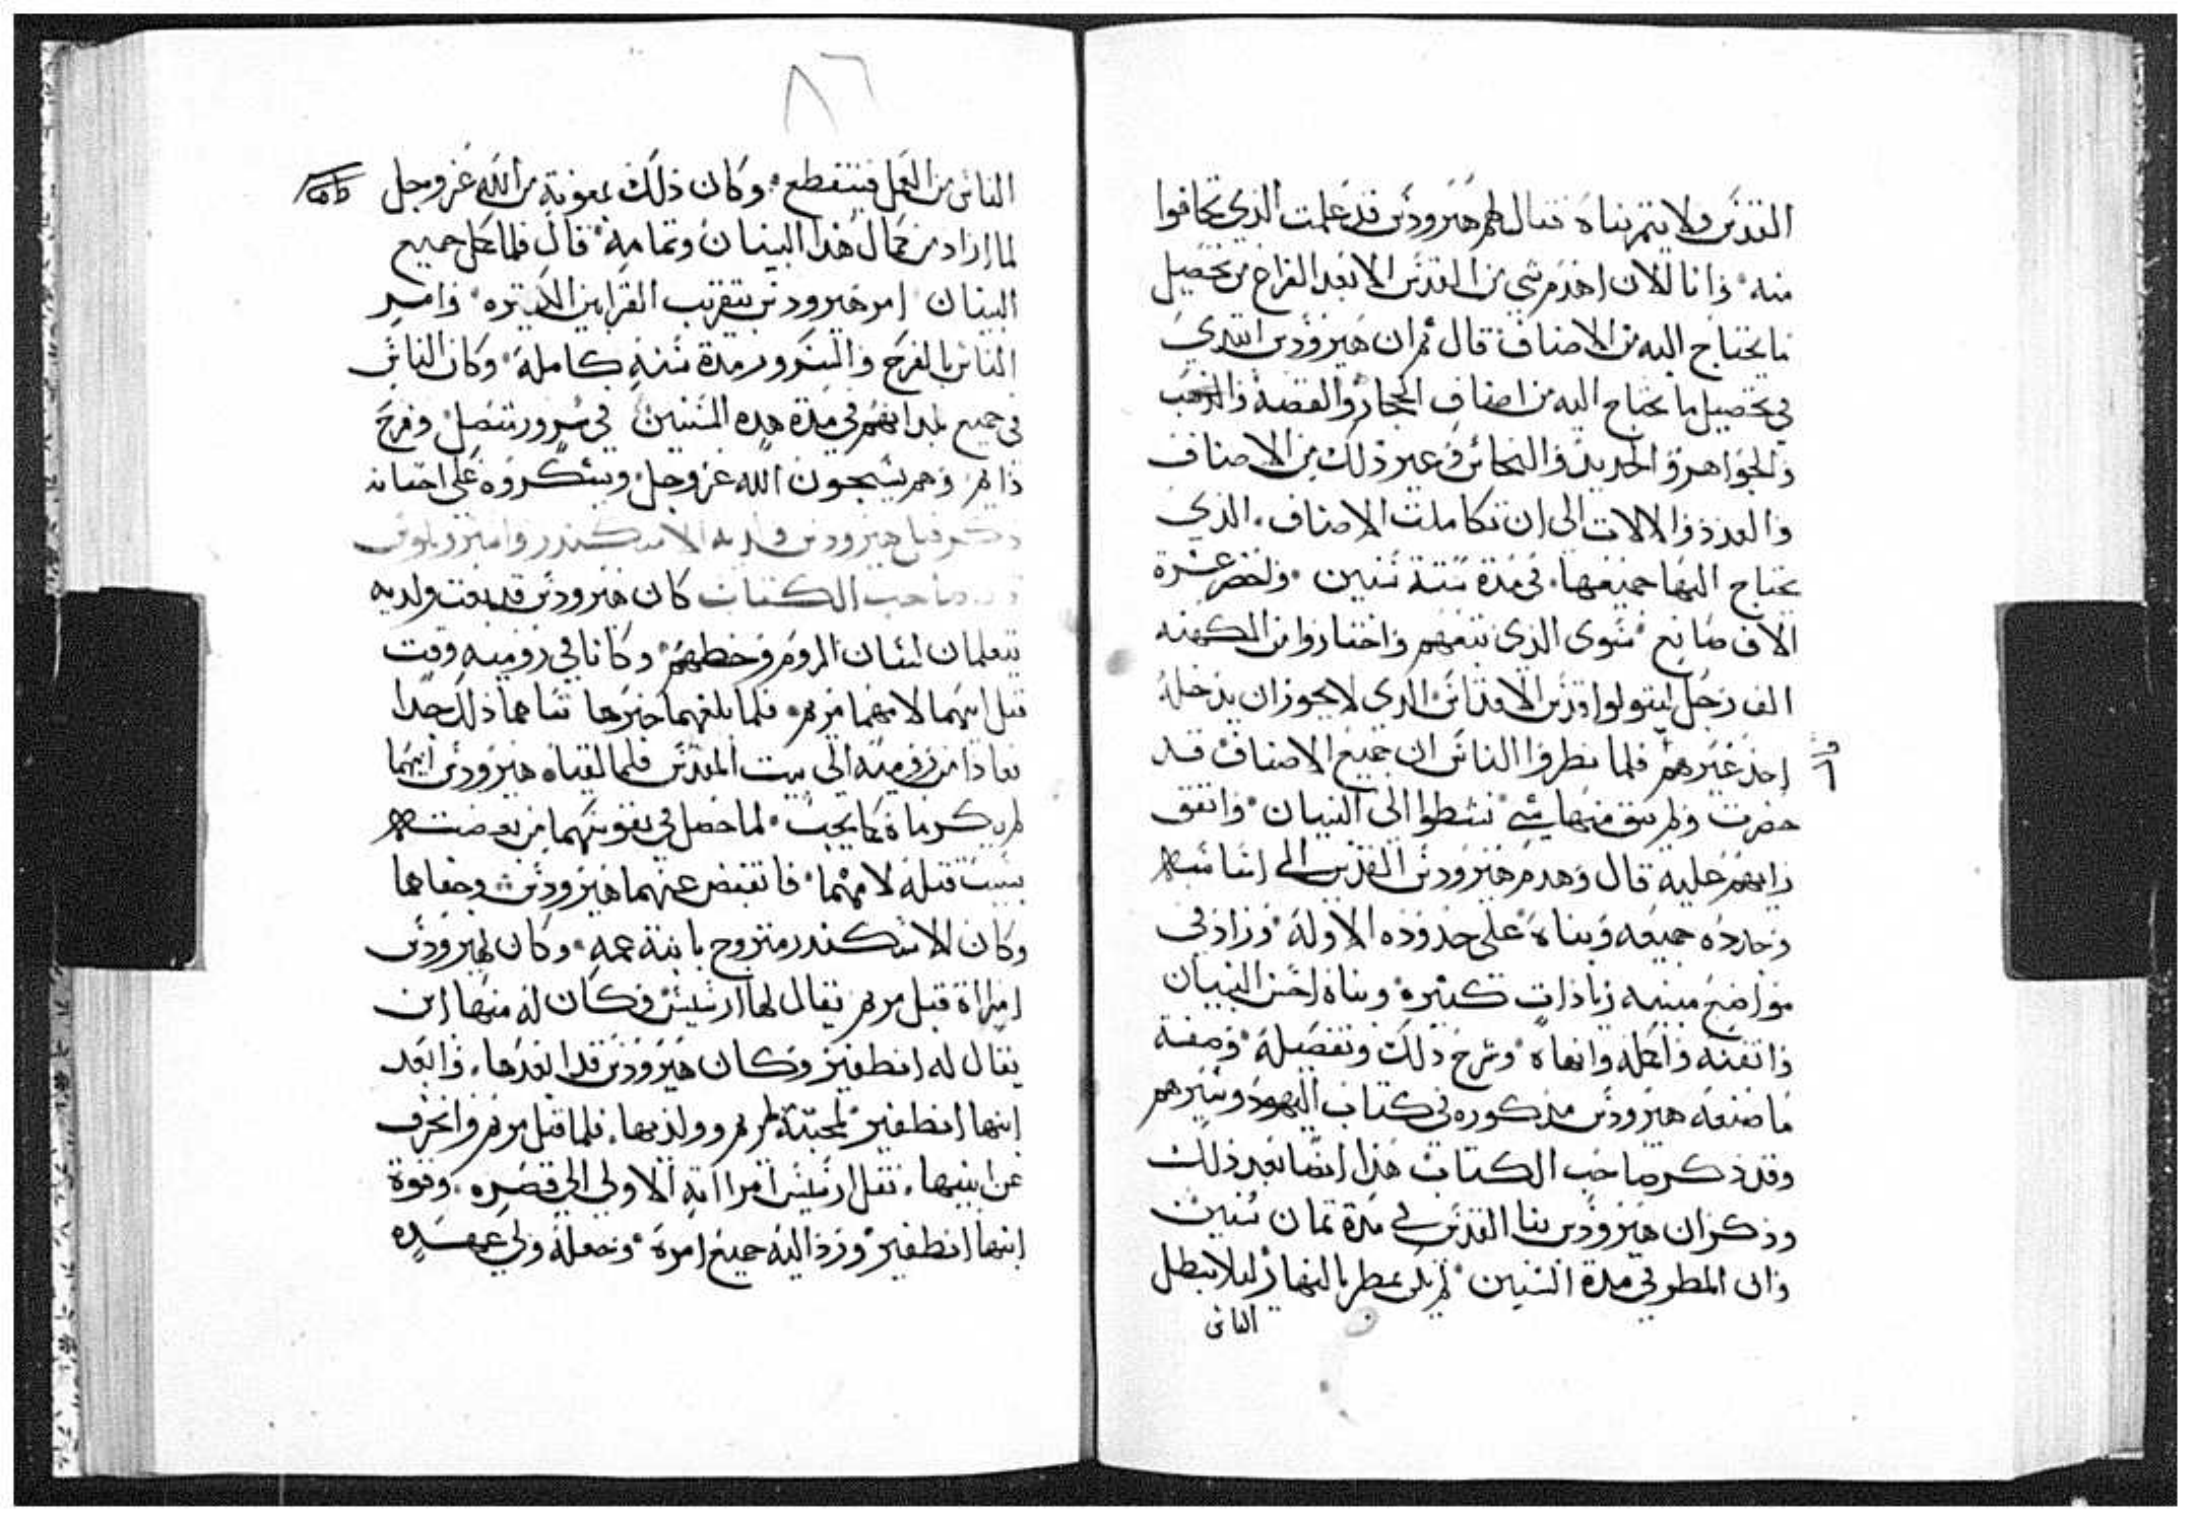 القدس ولا يتم بناه فقال لهم هيرودس قد علمت الذي تخافوا
منه وانا للان اهدم شي من القدس الا بعد الفراغ من تحصيل
ما يحتاج اليه من الاصناف قال ثم ان هيرودس ابتدي
في تحصيل ما يحتاج اليه من اصناف الحجار والفضة والذهب
والجواهر والحديد والنحاس وغير ذلك من الاصناف
والعدد والالات الى ان تكاملت الاصناف الذي
يحتاج اليها جميعها في مدة ستة سنين وحضر عشرة
الاف صانع سوى الذي تبعهم واختاروا من الكهنه
الف رجل ليتولوا قدس الاقداس الذي لا يجوز ان يدخله
احد غيرهم فلما نظروا الناس ان جميع الاصناف قد
حضرت ولم يبق منها شي نشطوا الى البنيان واتفق
رايهم عليه قال وهدم هيرودس القدس الى اساسه
وحدده جميعه وبناه على حدوده الاوله وزاد في
مواضع مبنيه زيادات كثيره وبناه احسن البنيان
واتقنه واكمله وانهاه وشرح ذلك وتفصيله وصفة
ما صنعه هيرودس مذكوره في كتاب اليهود وسيرهم
وقد ذكر صاحب الكتاب هذا ايضا بعد ذلك
وذكر ان هيرودس بنا القدس في مدة ثمان سنين
وان المطر في مدة السنين لم يكن يمطر بالنهار ليلا يبطل
الناس
٨٦
الناس من العمل فينقطع وكان ذلك بمعونة من الله عز وجل
لما اراد من كمال هذا البنيان وتمامه قال فلما كمل جميع
البنيان امر هيرودس بتقريب القرابين الكثيره وامر
الناس بالفرح والسرور مدة سنة كاملة وكان الناس
في جميع بلدانهم في مدة هذه السنين في سرور متصل وفرح
دايم وهم يسبحون الله عز وجل ويشكروه على احسانه
ذكر قتل هيرودس ولديه الاسكندر
صاحب الكتاب كان هيرودس قد بعت ولديه
يتعلمان لسان الروم وخطهم وكانا في روميه وقت
قتل ابيهما لامهما مريم فلما بلغهما خبرها ساهما ذلك جدا
فعادا من روميه الى بيت المقدس فلما لقياه هيرودس ابيهما
لم يكرماه كما يجب لما حصل في نفوسهما من بغضته
بسبب قتله لامهما فانقبض عنهما هيرودس وجفاهما
وكان الاسكندر متزوج بابنة عمه وكان لهيرودس
امراة قبل مريم يقال لها ارسيس وكان له منها ابن
يقال له انطفيتر وكان هيرودس قد ابعدها وابعد
ابنها انطفيتر لمحبتة لمريم وولديها فلما قتل مريم وانحرف
عن ابنيها نقل ارسيس امراته الاولي الي قصره وقوة
ابنها انطفيتر ورد اليه جميع امره وجعله ولي عهده